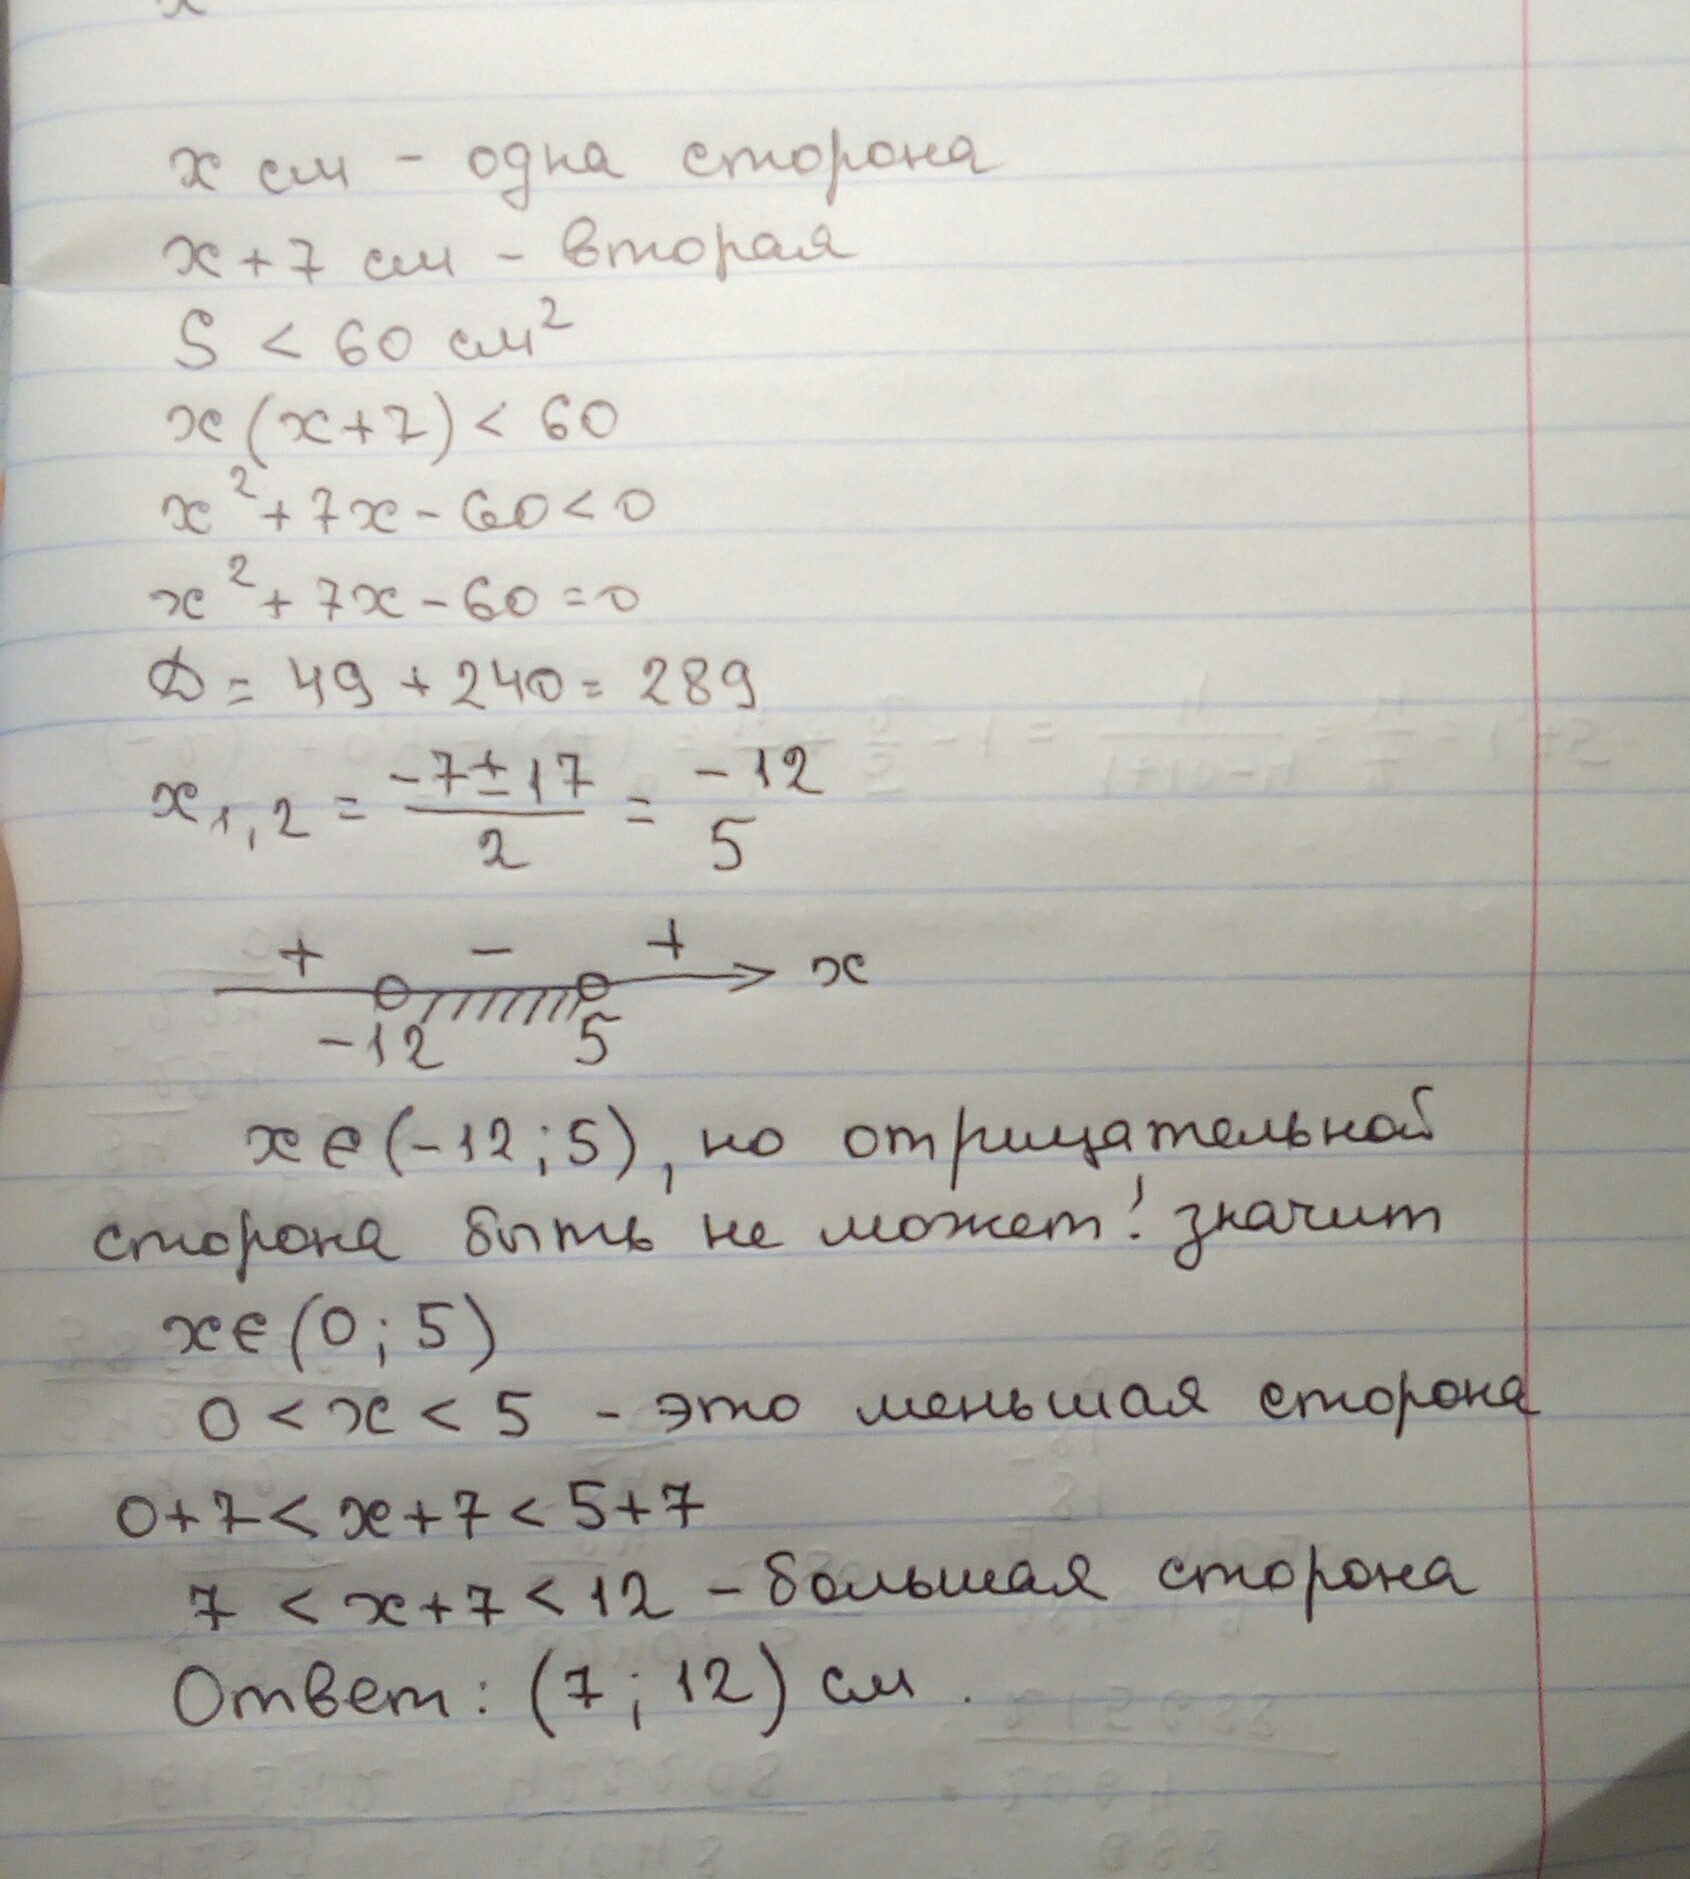 x см - одна сторона
x + 7 см - вторая
S < 60 см²
x(x+7) < 60
x² + 7x - 60 < 0
x² + 7x - 60 = 0
D = 49 + 240 = 289
x₁,₂ = (-7 ± 17)/2 = -12
5
+ - +
x
-12 5
x ∈ (-12; 5), но отрицательной
сторона быть не может! значит
x ∈ (0; 5)
0 < x < 5 - это меньшая сторона
0+7 < x+7 < 5+7
7 < x+7 < 12 - большая сторона
Ответ: (7; 12) см.